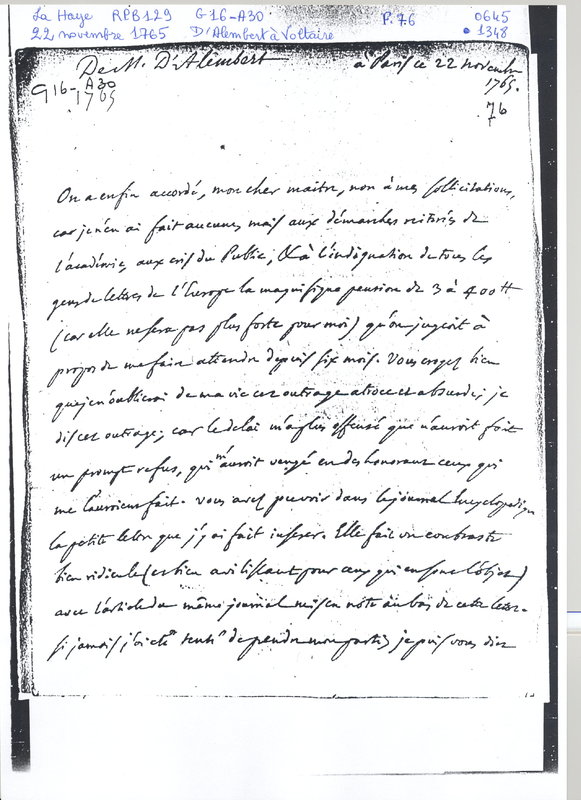 La Haye RPB129 G16-A30 P.76 0645
22 novembre 1765 D'Alembert à Voltaire • 1348
De M. D'Alembert à Paris ce 22 novembre
G16-A30 1765.
1765 76
On a enfin accordé, mon cher maitre, non à mes sollicitations,
car je n'en ai fait aucunes, mais aux démarches réiterés de
l'académie, aux cris du Public, & à l'indignation de tous les
gens de lettres de l'Europe la magnifique pension de 3 à 400 tt
(car elle ne sera pas plus forte pour moi) qu'on jugeoit à
propos de me faire attendre depuis six mois. Vous croyez bien
que je n'oublierai de ma vie cet outrage atroce et absurde; je
dis cet outrage, car le delai m'a plus offensé que n'auroit fait
un prompt refus, qui m'auroit vengé en deshonorant ceux qui
me l'auroient fait. vous avez pu voir dans le journal Encyclopédique
la petite lettre que j'y ai fait inserer. Elle fait un contraste
bien ridicule (et bien avilissant pour ceux qui en sont l'objet)
avec l'article du même journal mis en note au bas de cette lettre.
si jamais j'ai été tenté de prendre mon parti, je puis vous dire